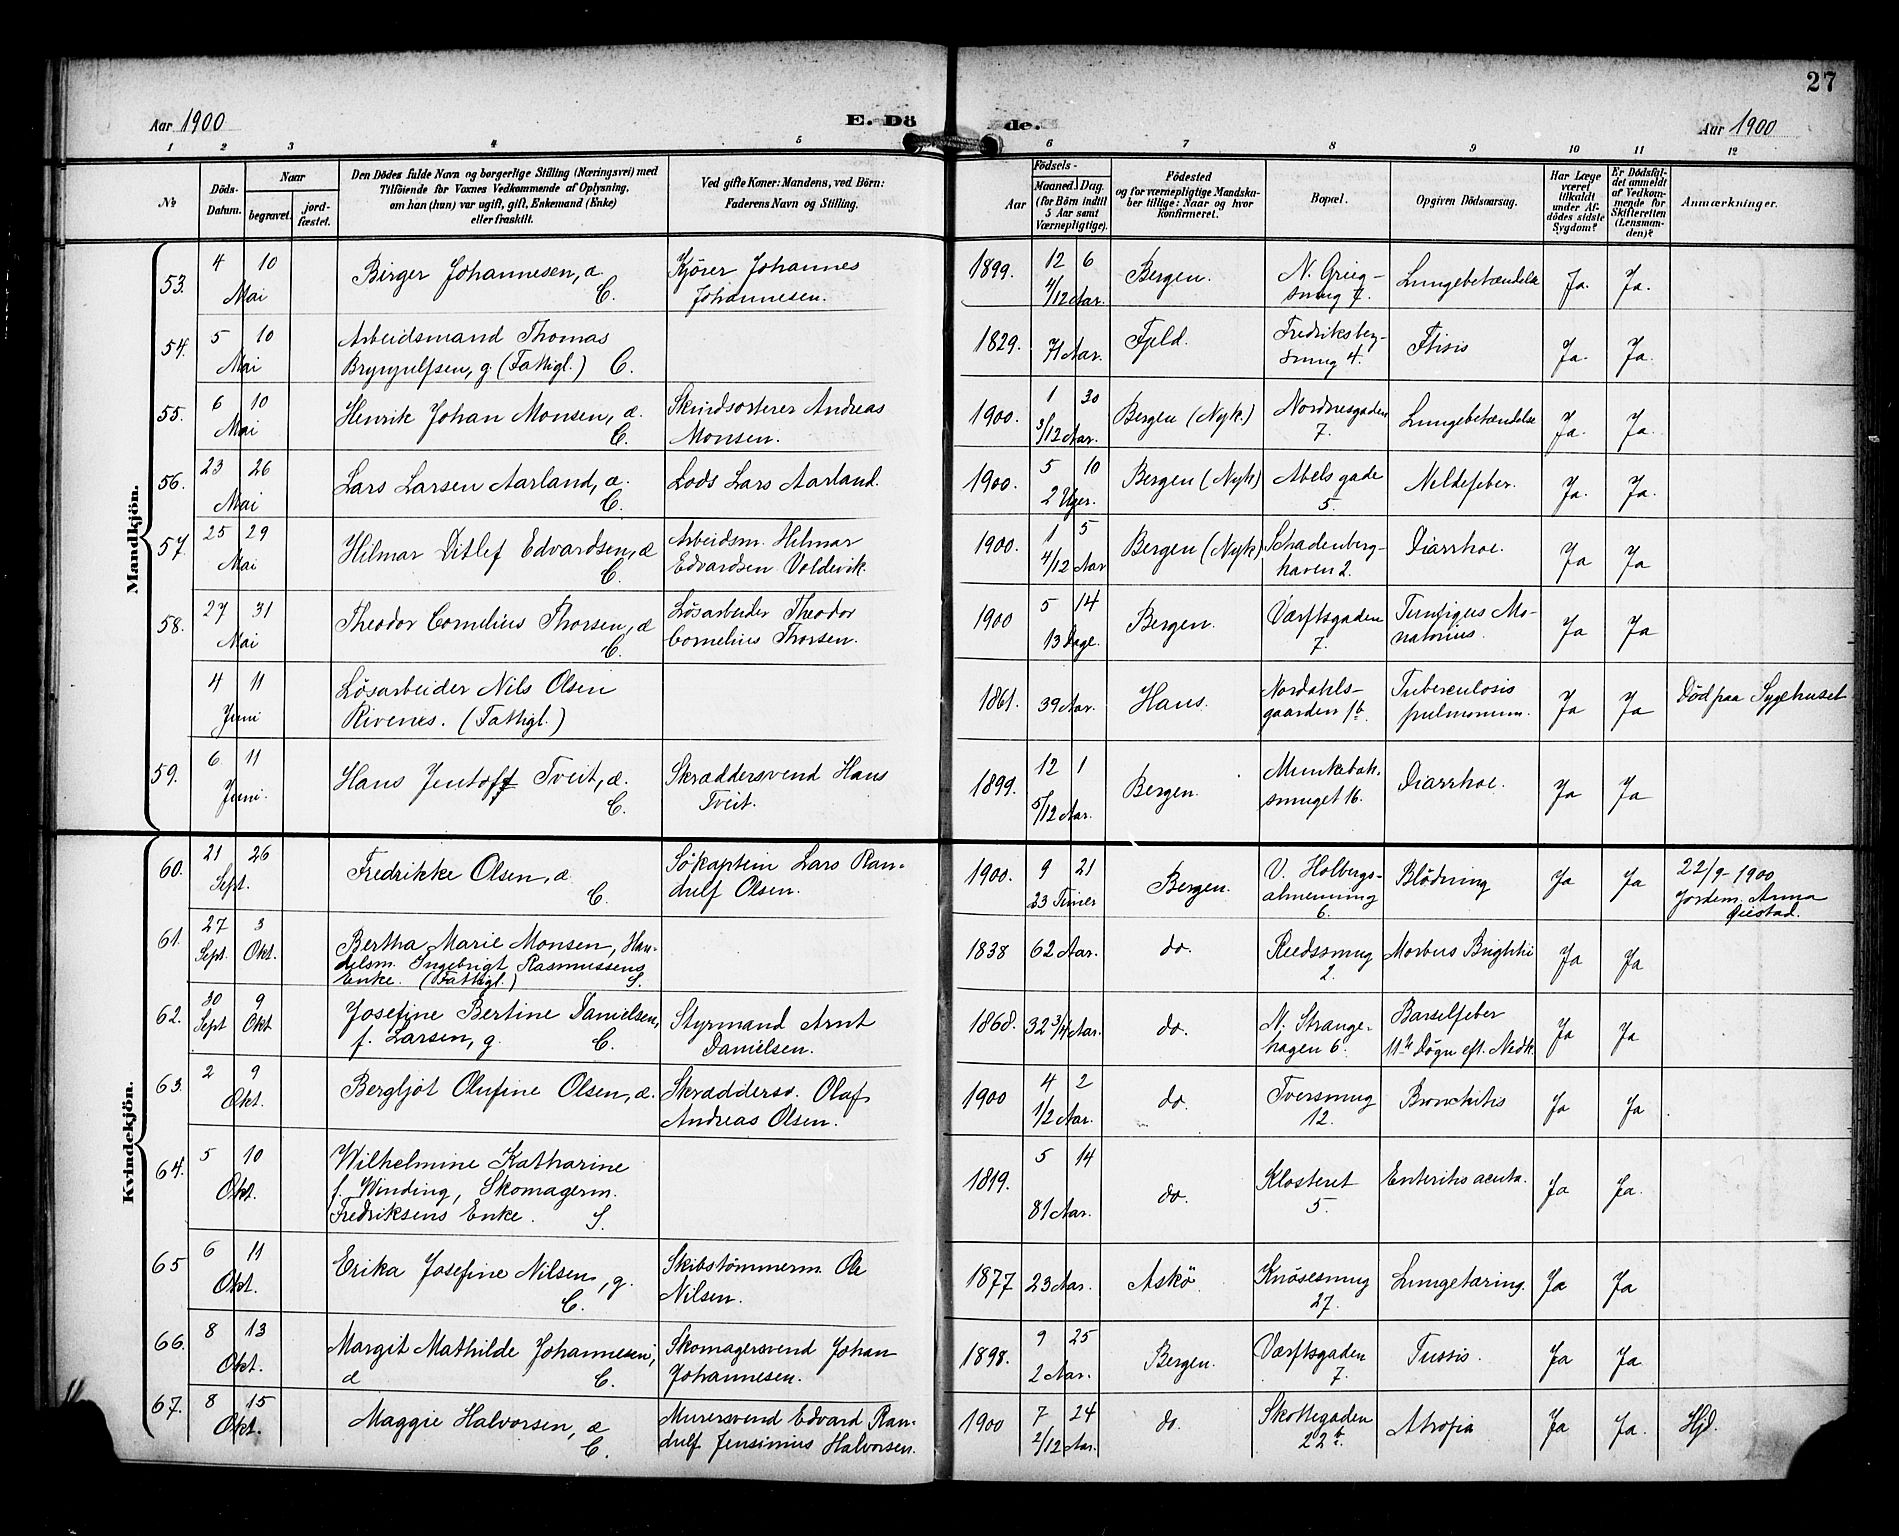 27
Aar 1900
E. Döde.
Aar 1900
1 2 3 4 5 6 7 8 9 10 11 12
No
Döds-Datum.
Naar
begravet.
jordfæstet.
Den Dödes fulde Navn og borgerlige Stilling (Næringsvei) med
Tilföiende for Voxnes Vedkommende af Oplysning,
om han (hun) var ugift, gift, Enkemand (Enke)
eller fraskilt.
Ved gifte Koner: Mandens, ved Börn:
Faderens Navn og Stilling.
Födsels-
Aar
Maaned. Dag.
(for Börn indtil
5 Aar samt
Værnepligtige).
Födested
og for værnepligtige Mandska-
ber tillige: Naar og hvor
konfirmeret.
Bopæl.
Opgiven Dödsaarsag.
Har Læge
været
tilkaldt
under Af-
dödes sidste
Sygdom?
Er Dödsfal-
det anmeldt
af Vedkom-
mende for
Skifteretten
(Lensman-
den)?
Anmærkninger.
Mandkjön.
53. 4 10 Mai
Birger Johannesen, æ. C.
Kjörer Johannes
Johannesen.
1899. 12 6 4/12 Aar.
Bergen.
N. Grieg-
smug 7.
Lungebetændelse
Ja. Ja.
54. 5 10 Mai
Arbeidsmand Thomas
Brynjulfsen, g. (Fattigl.) C.
1829. 71 Aar.
Fjeld.
Fredriksberg-
smug 4.
Ftisis
Ja. Ja.
55. 6 10 Mai
Henrik Johan Monsen, æ. C.
Skindsorterer Andreas
Monsen.
1900. 1 30 3/12 Aar.
Bergen (Nyk.)
Nordnesgaden
7.
Lungebetændelse
Ja. Ja.
56. 23 26 Mai
Lars Larsen Aarland, æ. C.
Lods Lars Aarland.
1900. 5 10 2 Uger.
Bergen (Nyk)
Abels gade
5.
Neldefeber.
Ja. Ja.
57. 25 29 Mai
Hilmar Ditlef Edvardsen, æ C.
Arbeidsm. Hilmar
Edvardsen Voldevik.
1900. 1 5 4/12 Aar
Bergen (Nyk)
Schadenberg-
haven 2.
Diarrhoe.
Ja Ja
58. 27 31 Mai
Theodor Cornelius Thorsen, æ C.
Lösarbeider Theodor
Cornelius Thorsen.
1900 5 14 13 Dage.
Bergen.
Værftsgaden
7.
Ja Ja
4 11 Juni
Lösarbeider Nils Olsen
Rivenes. (Fattigl.)
1861. 39 Aar.
Haus.
Nordahls-
gaarden 1b.
Tuberculosis
pulmonum.
Ja Ja
Död paa Sygehuset
59. 6 11 Juni.
Hans Jentoft Tveit, æ. C.
Skræddersvend Hans
Tveit.
1899. 12 1 5/12 Aar.
Bergen.
Munkebæk-
smuget 16.
Diarrhoe.
Ja Ja
Kvindekjön.
60. 21 26 Sept.
Fredrikke Olsen, æ C.
Sökaptein Lars Ran-
dulf Olsen.
1900. 9 21 23 Timer
Bergen.
V. Holbergs-
almenning
6.
Blödning
Ja Ja
22/9-1900
Jordem. Anna
61. 27 Sept. 3 Okt.
Bertha Marie Monsen, Han-
delsm. Ingebrigt Rasmussens
Enke. (Fattigl.) S.
1838 62 Aar.
do.
Reedssmug
2.
Morbus Brightii
Ja Ja
62. 30 Sept 9 Okt
Josefine Bertine Danielsen,
f. Larsen, g. C.
Styrmand Arnt
Danielsen.
1868. 32 3/4 Aar.
do.
N. Strange-
hagen 6.
Barselfeber
11te Dögn eft. Nedk.
Ja Ja
63. 2 9 Okt.
Bergljot Olufine Olsen, æ.
Skræddersv. Olaf
Andreas Olsen.
1900 4 2 1/2 Aar.
do.
Tversmug
12.
Bronchitis
Ja Ja
64. 5 10 Okt.
Wilhelmine Katharine
f. Winding, Skomagerm.
Fredriksens Enke. S.
1819. 5 14 81 Aar.
do.
Klosteret
5.
Enteritis acuta.
Ja Ja.
65 6 11 Okt.
Erika Josefine Nilsen, g. C.
Skibstömmerm. Ole
Nilsen.
1877 23 Aar.
Askö.
Knösesmug
27.
Lungetæring.
Ja Ja
66. 8 13 Okt.
Margit Mathilde Johannesen,
æ C.
Skomagersvend Johan
Johannesen.
1898. 9 25 2 Aar.
Bergen.
Værftsgaden
7.
Tussis.
Ja Ja
67. 8 15 Okt.
Maggie Halvorsen, æ C.
Murersvend Edvard Ran-
dulf Jensinius Halvorsen.
1900 7 24 2/12 Aar.
do.
Skottegaden
22b.
Atrofia
Ja Ja.
Hjd.